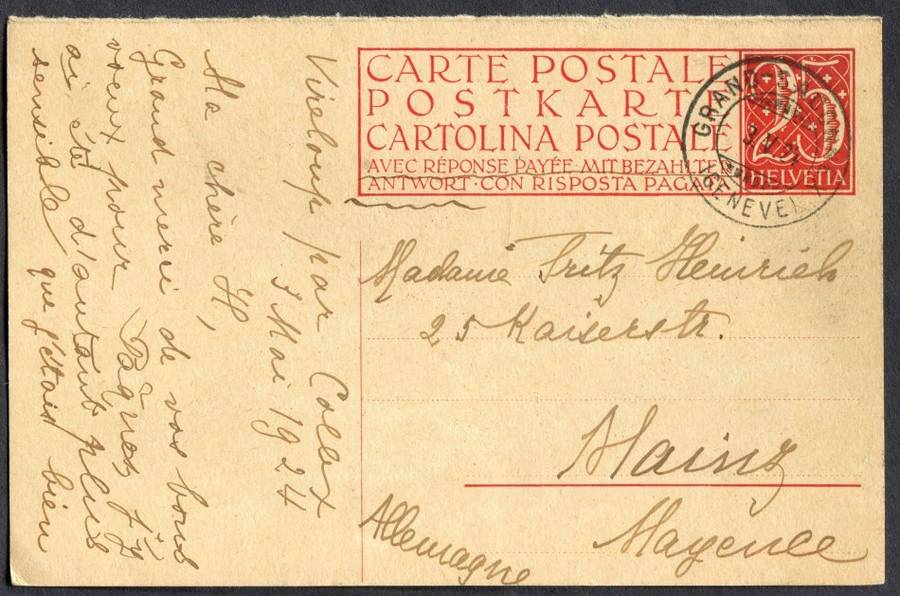 CARTE POSTALE
POSTKARTE
CARTOLINA POSTALE
AVEC RÉPONSE PAYÉE · MIT BEZAHLTER
ANTWORT · CON RISPOSTA PAGATA
25
HELVETIA
GRAND-
(GENÈVE)
Vireloup par Collex
Mai 1924
Ma chère H,
Grand merci de vos bons
voeux pour Pâques j'y
ai été d'autant plus
sensible que j'étais bien
Madame Fritz Heinrich
25 Kaiserstr.
Mainz
Mayence
Allemagne